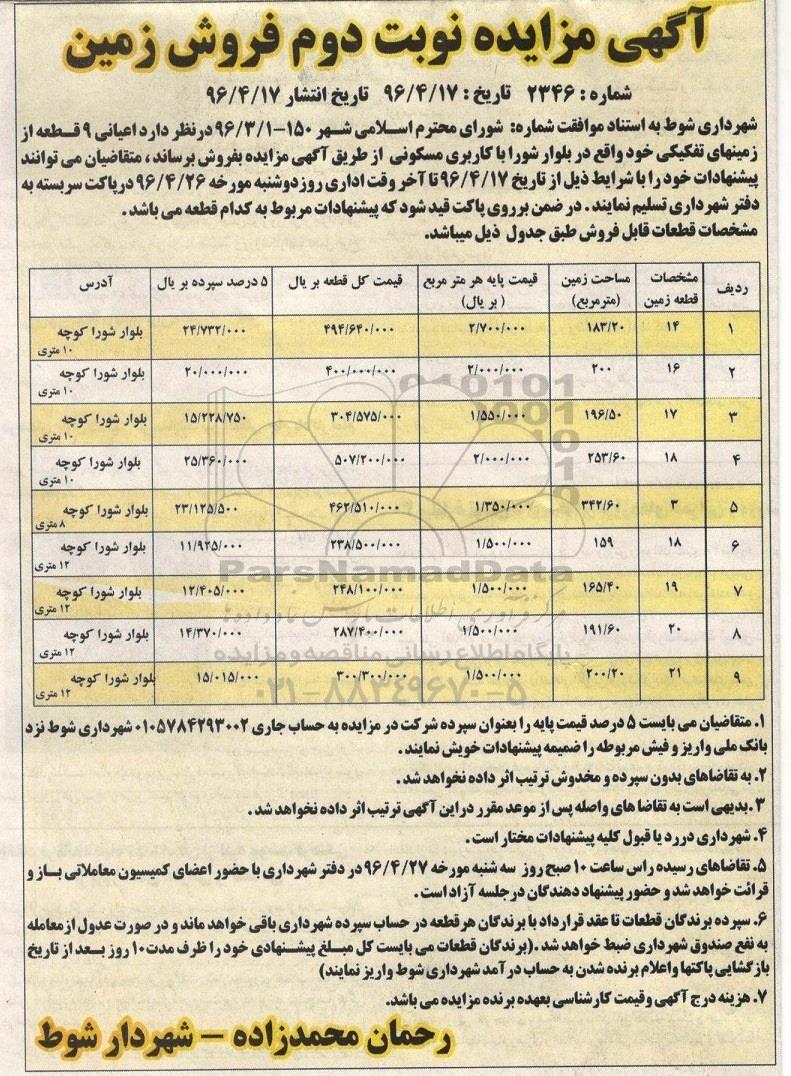 آگهی مزایده نوبت دوم فروش زمین
شماره : ۲۳۴۶ تاریخ : ۹۶/۴/۱۷ تاریخ انتشار ۹۶/۴/۱۷
شهرداری شوط به استناد موافقت شماره: شورای محترم اسلامی شهر ۱۵۰-۹۶/۳/۱ درنظر دارد اعیانی ۹ قطعه از
زمینهای تفکیکی خود واقع در بلوار شورا با کاربری مسکونی از طریق آگهی مزایده بفروش برساند ، متقاضیان می توانند
پیشنهادات خود را با شرایط ذیل از تاریخ ۹۶/۴/۱۷ تا آخر وقت اداری روز دوشنبه مورخه ۹۶/۴/۲۶ درپاکت سربسته به
دفتر شهرداری تسلیم نمایند . در ضمن برروی پاکت قید شود که پیشنهادات مربوط به کدام قطعه می باشد .
مشخصات قطعات قابل فروش طبق جدول ذیل میباشد.
ردیف مشخصات قطعه زمین مساحت زمین (مترمربع) قیمت پایه هر متر مربع ( بر یال) قیمت کل قطعه بر یال ۵ درصد سپرده بر یال آدرس
۱ ۱۴ ۱۸۳/۲۰ ۲/۷۰۰/۰۰۰ ۴۹۴/۶۴۰/۰۰۰ ۲۴/۷۳۲/۰۰۰ بلوار شورا کوچه ۱۰ متری
۲ ۱۶ ۲۰۰ ۲/۰۰۰/۰۰۰ ۴۰۰/۰۰۰/۰۰۰ ۲۰/۰۰۰/۰۰۰ بلوار شورا کوچه ۱۰ متری
۳ ۱۷ ۱۹۶/۵۰ ۱/۵۵۰/۰۰۰ ۳۰۴/۵۷۵/۰۰۰ ۱۵/۲۲۸/۷۵۰ بلوار شورا کوچه ۱۰ متری
۴ ۱۸ ۲۵۳/۶۰ ۲/۰۰۰/۰۰۰ ۵۰۷/۲۰۰/۰۰۰ ۲۵/۳۶۰/۰۰۰ بلوار شورا کوچه ۱۰ متری
۵ ۳ ۳۴۲/۶۰ ۱/۳۵۰/۰۰۰ ۴۶۲/۵۱۰/۰۰۰ ۲۳/۱۲۵/۵۰۰ بلوار شورا کوچه ۸ متری
۶ ۱۸ ۱۵۹ ۱/۵۰۰/۰۰۰ ۲۳۸/۵۰۰/۰۰۰ ۱۱/۹۲۵/۰۰۰ بلوار شورا کوچه ۱۲ متری
۷ ۱۹ ۱۶۵/۴۰ ۱/۵۰۰/۰۰۰ ۲۴۸/۱۰۰/۰۰۰ ۱۲/۴۰۵/۰۰۰ بلوار شورا کوچه ۱۲ متری
۸ ۲۰ ۱۹۱/۶۰ ۱/۵۰۰/۰۰۰ ۲۸۷/۴۰۰/۰۰۰ ۱۴/۳۷۰/۰۰۰ بلوار شورا کوچه ۱۲ متری
۹ ۲۱ ۲۰۰/۲۰ ۱/۵۰۰/۰۰۰ ۳۰۰/۳۰۰/۰۰۰ ۱۵/۰۱۵/۰۰۰ بلوار شورا کوچه ۱۲ متری
ParsNamadData
پایگاه اطلاع رسانی مناقصه و مزایده
۰۲۱-۸۸۳۴۹۶۷۰-۵
۱. متقاضیان می بایست ۵ درصد قیمت پایه را بعنوان سپرده شرکت در مزایده به حساب جاری ۰۱۰۵۷۸۴۲۹۳۰۰۲ شهرداری شوط نزد
بانک ملی واریز و فیش مربوطه را ضمیمه پیشنهادات خویش نمایند .
۲. به تقاضاهای بدون سپرده و مخدوش ترتیب اثر داده نخواهد شد .
۳ .بدیهی است به تقاضا های واصله پس از موعد مقرر دراین آگهی ترتیب اثر داده نخواهد شد .
۴. شهرداری دررد یا قبول کلیه پیشنهادات مختار است .
۵. تقاضاهای رسیده راس ساعت ۱۰ صبح روز سه شنبه مورخه ۹۶/۴/۲۷ در دفتر شهرداری با حضور اعضای کمیسیون معاملاتی باز و
قرائت خواهد شد و حضور پیشنهاد دهندگان درجلسه آزاد است .
۶. سپرده برندگان قطعات تا عقد قرارداد با برندگان هر قطعه در حساب سپرده شهرداری باقی خواهد ماند و در صورت عدول از معامله
به نفع صندوق شهرداری ضبط خواهد شد .( برندگان قطعات می بایست کل مبلغ پیشنهادی خود را ظرف مدت ۱۰ روز بعد از تاریخ
بازگشایی پاکتها واعلام برنده شدن به حساب درآمد شهرداری شوط واریز نمایند)
۷. هزینه درج آگهی وقیمت کارشناسی بعهده برنده مزایده می باشد.
رحمان محمدزاده – شهردار شوط